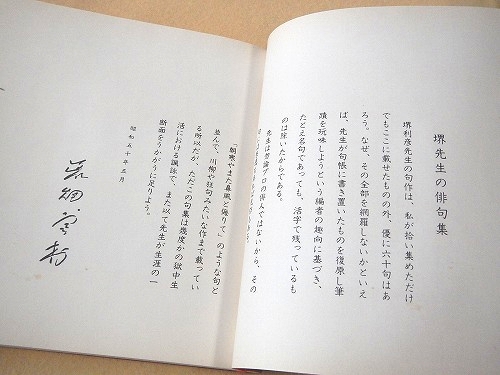 堺先生の俳句集
堺利彦先生の句作は、私が拾い集めただけ
でもここに載せたものの外、優に六十句はあ
ろう。なぜ、その全部を網羅しないかといえ
ば、先生が句帳に書き置いたものを復原し筆
蹟を玩味しようという編者の趣向に基づき、
たとえ名句であっても、活字で残っているも
のは除いたからである。
先生は勿論プロの俳人ではないから、その
「朝寒やまた暮風と偽りて」のような句と
並んで、川柳や狂句みたいな作まで載ってい
る所以だが、ただこの句集は幾度かの獄中生
活における諷詠で、また以て先生が生涯の一
断面をうかがうに足りよう。
昭和五十年三月
荒畑寒村